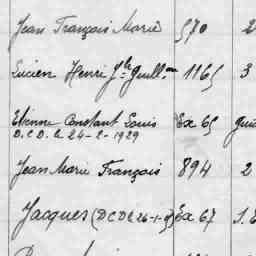 Jean François Marie 570 2
Lucien Henri Jh Guill.me 1165 3
Etienne Constant Louis Ex 65
D.C.D. le 24-2-1929
Jean Marie François 894 2
Jacques (DCD le 26-1- Ex 67